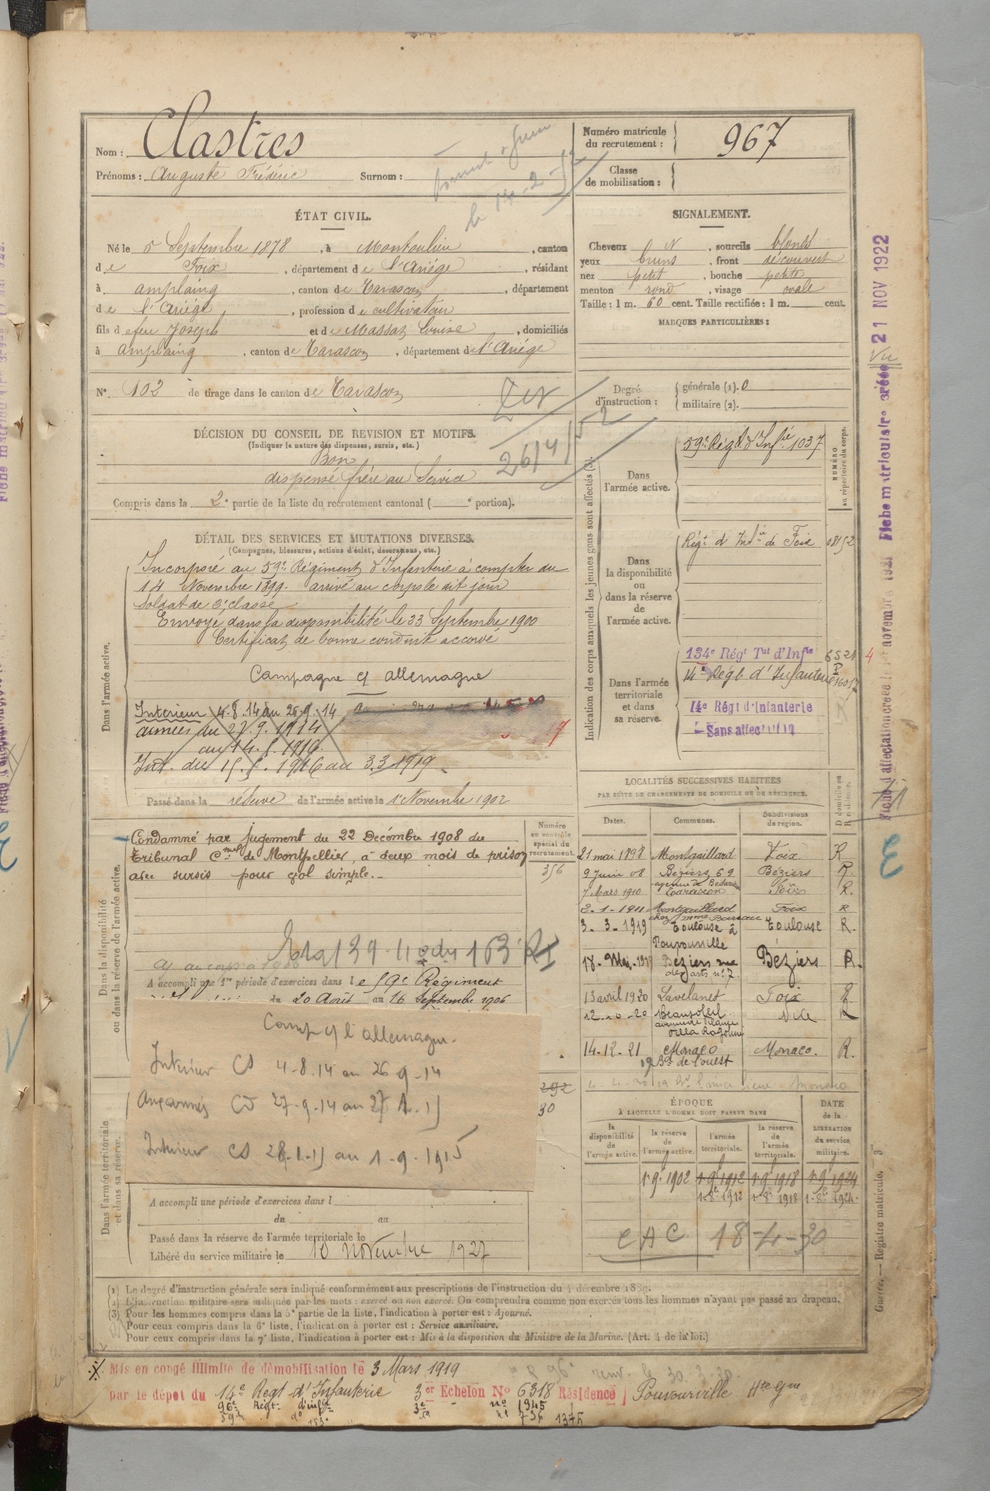 Nom : Clastres
Prénoms : Auguste Frédéric Surnom :
Numéro matricule du recrutement : 967
Classe de mobilisation :
ÉTAT CIVIL.
Né le 5 Septembre 1878, à Montoulieu, canton
de Foix, département de l'Ariège, résidant
à amplaing, canton de Tarascon, département
de l'Ariège, profession de cultivateur
fils de feu Joseph et de Massat Louise, domiciliés
à amplaing, canton de Tarascon, département de l'Ariège
N° 102 de tirage dans le canton de Tarascon
SIGNALEMENT.
Cheveux N, sourcils blonds
yeux bruns, front découvert
nez petit, bouche petite
menton rond, visage ovale
Taille : 1 m. 60 cent. Taille rectifiée : 1 m. cent.
MARQUES PARTICULIÈRES :
Degré d'instruction : générale (1). 0
militaire (2).
DÉCISION DU CONSEIL DE REVISION ET MOTIFS.
(Indiquer la nature des dispenses, sursis, etc.)
Bon
dispensé frère au Service
Compris dans la 2e partie de la liste du recrutement cantonal ( e portion).
26/4/52
DÉTAIL DES SERVICES ET MUTATIONS DIVERSES.
(Campagnes, blessures, actions d'éclat, décorations, etc.)
Dans l'armée active.
Incorporé au 59e Régiment d'Infanterie à compter du
14 Novembre 1899. arrivé au corps le dit jour
Soldat de 2e classe
Envoyé dans la disponibilité le 23 Septembre 1900
Certificat de bonne conduite accordé
Campagne c/ allemagne
Intérieur 4.8.14 au 26.9.14
armées du 27.9.1914
Int. du au 3.3.1919.
Passé dans la réserve de l'armée active le 1er Novembre 1902
Dans la disponibilité ou dans la réserve de l'armée active.
Condamné par jugement du 22 Décembre 1908 du
Tribunal Cnel de Montpellier, à deux mois de prison
avec sursis pour vol simple.-
Numéro au contrôle spécial du recrutement.
356
A accompli une 1re période d'exercices dans le 59e Régiment
du 20 Août au 16 Septembre 1906
Camp c/ l'allemagne.
Intérieur CS 4-8.14 au 26-9-14
Aux armées CD 27-9.14 au 27 1.15
Intérieur CS 28-1-15 au 1-9-1915
Dans l'armée territoriale et dans sa réserve.
A accompli une période d'exercices dans l
du au
Passé dans la réserve de l'armée territoriale le
Libéré du service militaire le 10 novembre 1927
Indication des corps auxquels les jeunes gens sont affectés (3).
NUMÉRO au répertoire du corps.
Dans l'armée active.
59e Régt d'Infie 1037
Dans la disponibilité ou dans la réserve de l'armée active.
Régt d'Infie de Foix
Dans l'armée territoriale et dans sa réserve.
134e Régt Tal d'Infie
14e Régt d'Infanterie
14e Régt d'Infanterie
Sans affectation
LOCALITÉS SUCCESSIVES HABITÉES
PAR SUITE DE CHANGEMENTS DE DOMICILE OU DE RÉSIDENCE.
Dates. Communes. Subdivisions de région. D domicile R résidence.
21 mai 1898 Montgaillard Foix R
9 Juin 08 Béziers 69 Béziers R
7 Mars 1910 Tarascon Foix R.
2-1-1911 Montgaillard Foix R
3-3-1919 Toulouse à Toulouse R.
Pouvourville
Béziers rue Béziers R.
des arts n° 7
13 avril 1920 Lavelanet Foix R
Beausoleil Nice R
14-12-21 Monaco Monaco. R.
Bd de l'ouest
ÉPOQUE
A LAQUELLE L'HOMME DOIT PASSER DANS
la disponibilité de l'armée active. la réserve de l'armée active. l'armée territoriale. la réserve de l'armée territoriale.
DATE de la LIBÉRATION du service militaire.
1-9-1902 1-9-1912 1-9-1918 1-9-1924
CAC 18-4-30
(1) Le degré d'instruction générale sera indiqué conformément aux prescriptions de l'instruction du 4 décembre 1889.
(2) L'instruction militaire sera indiquée par les mots : exercé ou non exercé. On comprendra comme non exercés tous les hommes n'ayant pas passé au drapeau.
(3) Pour les hommes compris dans la 5e partie de la liste, l'indication à porter est : Ajourné.
Pour ceux compris dans la 6e liste, l'indication à porter est : Service auxiliaire.
Pour ceux compris dans la 7e liste, l'indication à porter est : Mis à la disposition du Ministre de la Marine. (Art. 4 de la loi.)
Mis en congé illimité de démobilisation le 3 Mars 1919
par le dépôt du 14e Régt d'Infanterie 3er Echelon N° 6318 Résidence Pouvourville Hte Gne
96e Régt. d'infie 3e n° 1345
21 NOV 1922
Vu
Guerre. — Registre matricule. 3